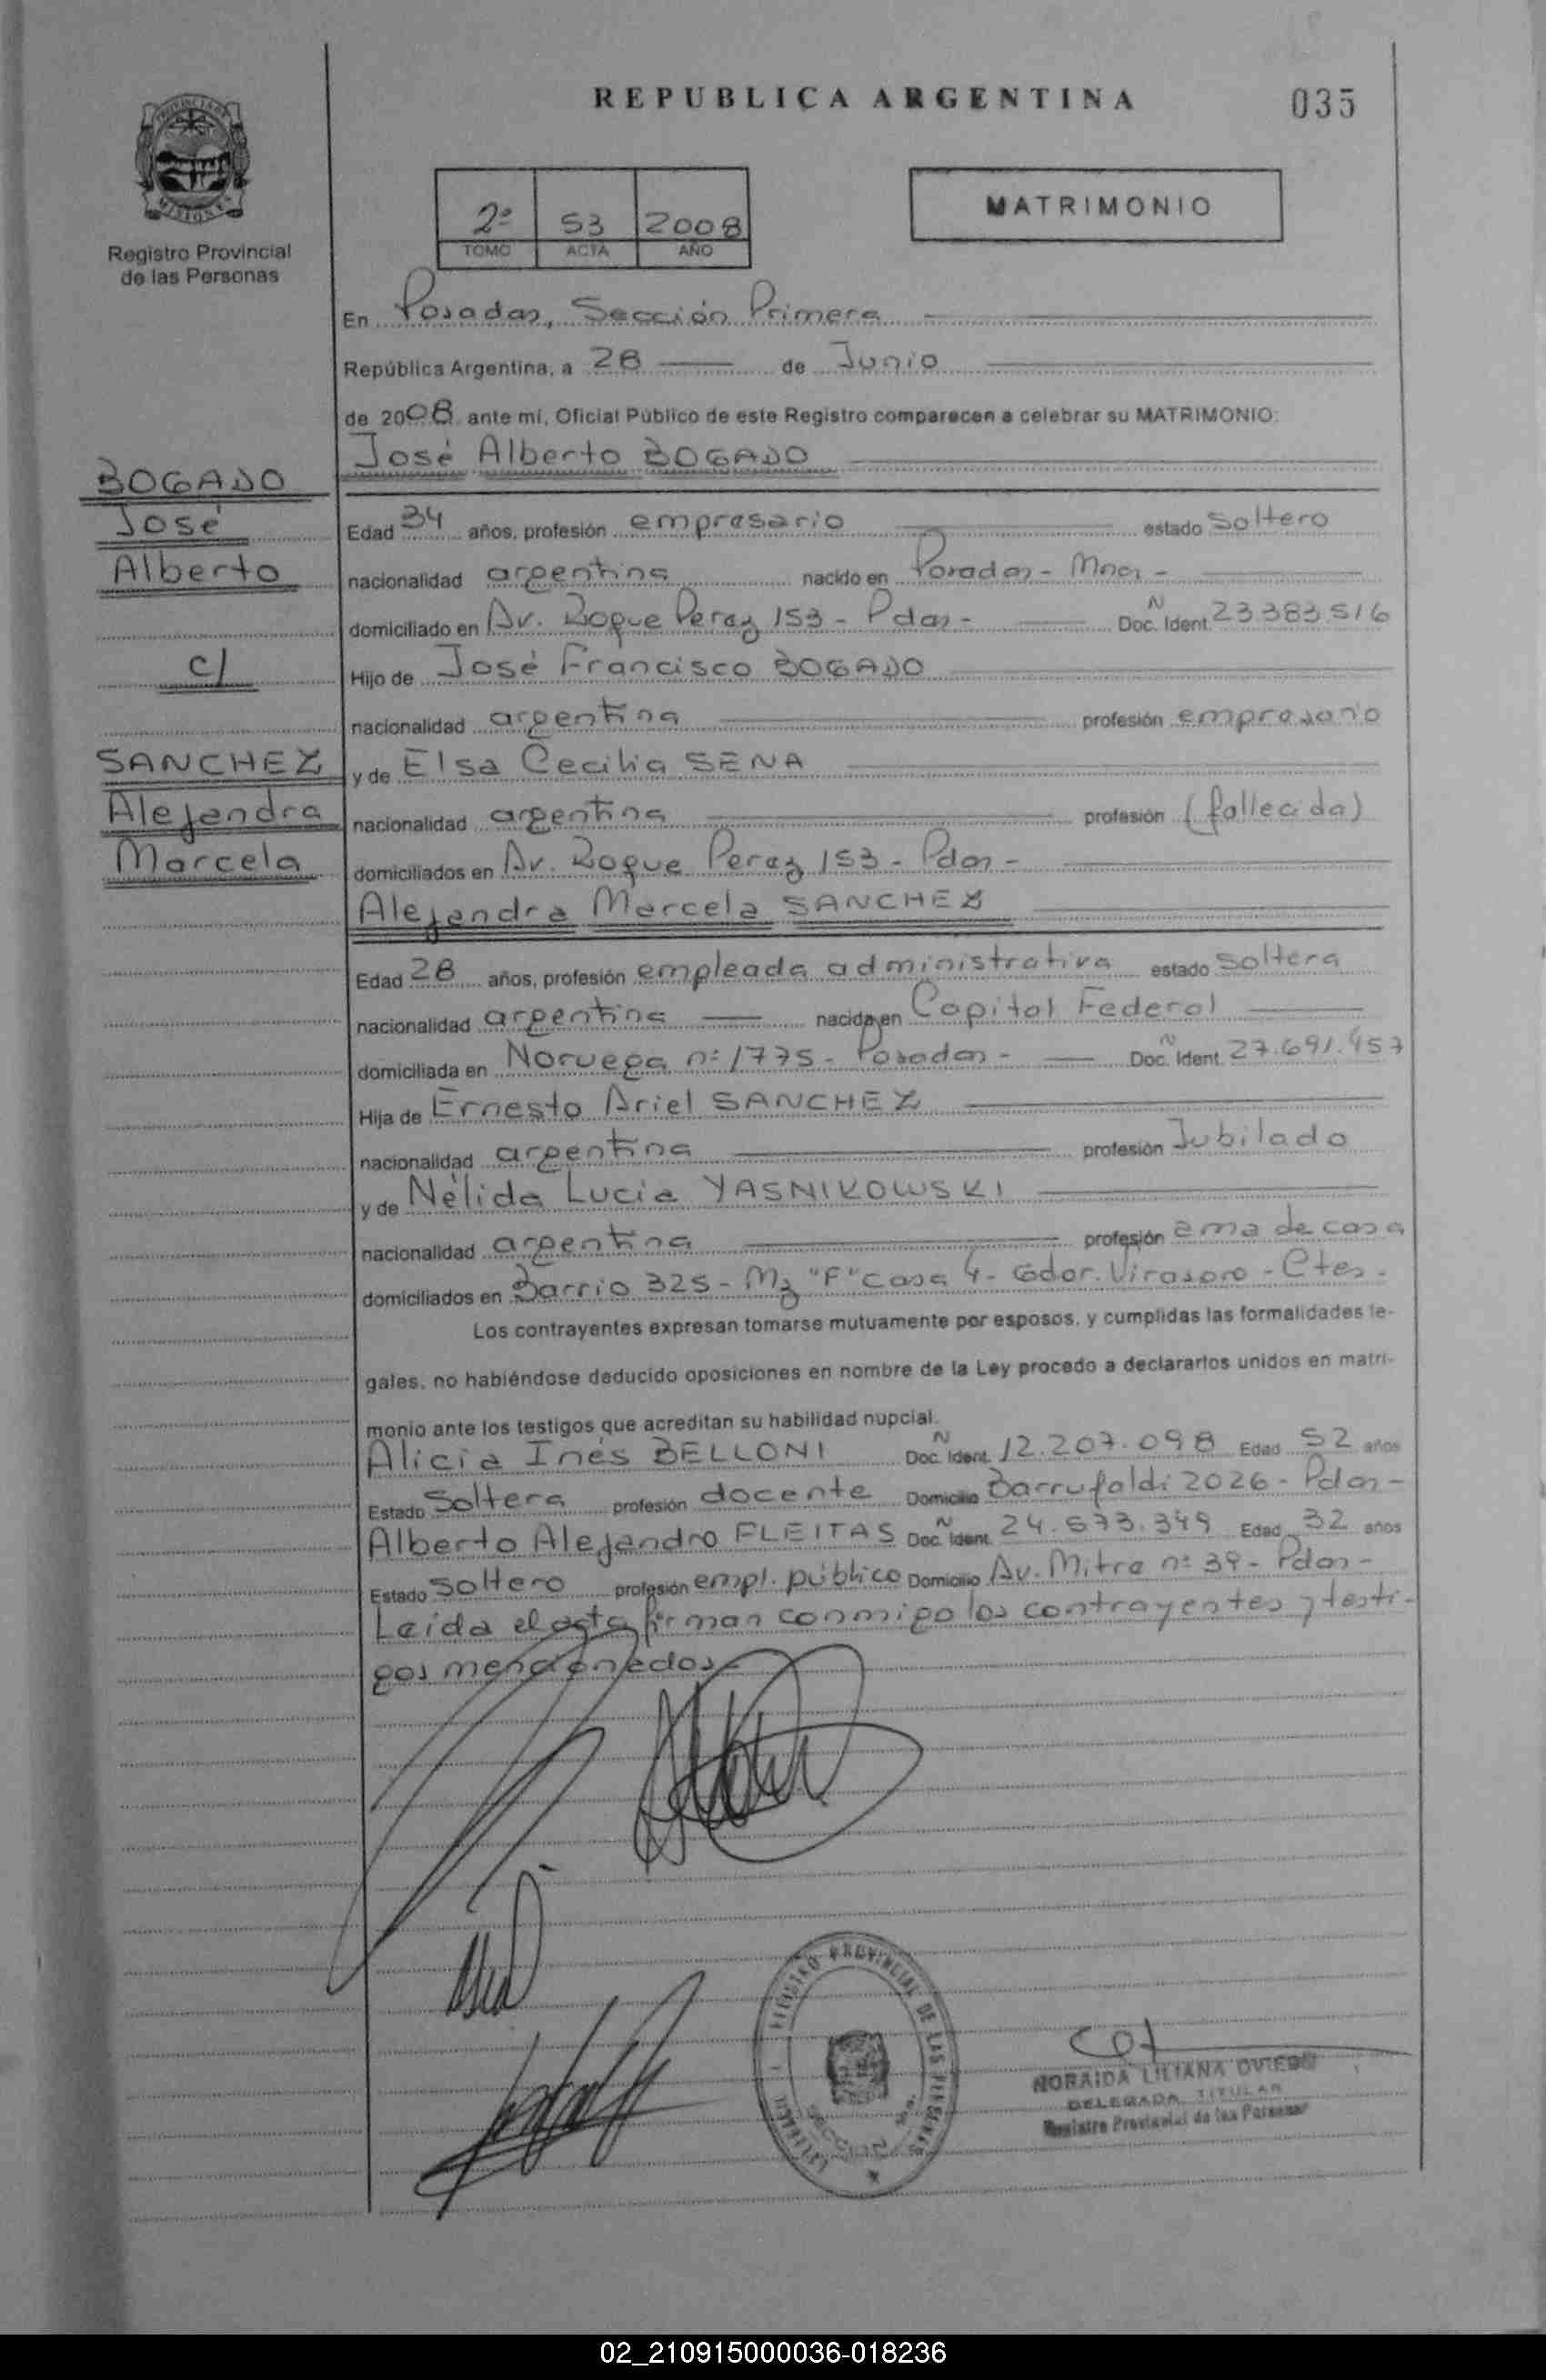 REPUBLICA ARGENTINA
035
MATRIMONIO
2º 53 2008
TOMO ACTA AÑO
Registro Provincial
de las Personas
En Posadas, Sección Primera
República Argentina, a 28 de Junio
de 2008 ante mí, Oficial Público de este Registro comparecen a celebrar su MATRIMONIO:
José Alberto BOGADO
BOGADO
José
Alberto
c/
SANCHEZ
Alejandra
Marcela
Edad 34 años, profesión empresario estado soltero
nacionalidad argentina nacido en Posadas - Mnes -
domiciliado en Av. Roque Perez 153 - Pdas - Doc. Ident. N 23383.516
Hijo de José Francisco BOGADO
nacionalidad argentina profesión empresario
y de Elsa Cecilia SENA
nacionalidad argentina profesión (fallecida)
domiciliados en Av. Roque Perez 153 - Pdas -
Alejandra Marcela SANCHEZ
Edad 28 años, profesión empleada administrativa estado soltera
nacionalidad argentina nacida en Capital Federal
domiciliada en Noruega nº 1775 - Posadas - Doc. Ident. N 27.691.457
Hija de Ernesto Ariel SANCHEZ
nacionalidad argentina profesión Jubilado
y de Nélida Lucia YASNIKOWSKI
nacionalidad argentina profesión ama de casa
domiciliados en Barrio 325 - Mz "F" Casa 4 - Gdor. Virasoro - Ctes -
Los contrayentes expresan tomarse mutuamente por esposos, y cumplidas las formalidades le-
gales, no habiéndose deducido oposiciones en nombre de la Ley procedo a declararlos unidos en matri-
monio ante los testigos que acreditan su habilidad nupcial.
Alicia Inés BELLONI Doc. Ident. N 12.207.098 Edad 52 años
Estado Soltera profesión docente Domicilio Barrufaldi 2026 - Pdas -
Alberto Alejandro FLEITAS Doc. Ident. N 24.573.349 Edad 32 años
Estado Soltero profesión empl. público Domicilio Av. Mitre nº 39 - Pdas -
Leída el acta firman conmigo los contrayentes y testi-
gos mencionados -
REGISTRO PROVINCIAL DE LAS PERSONAS
NORAIDA LILIANA OVIEDO
DELEGADA TITULAR
Registro Provincial de las Personas
02_210915000036-018236